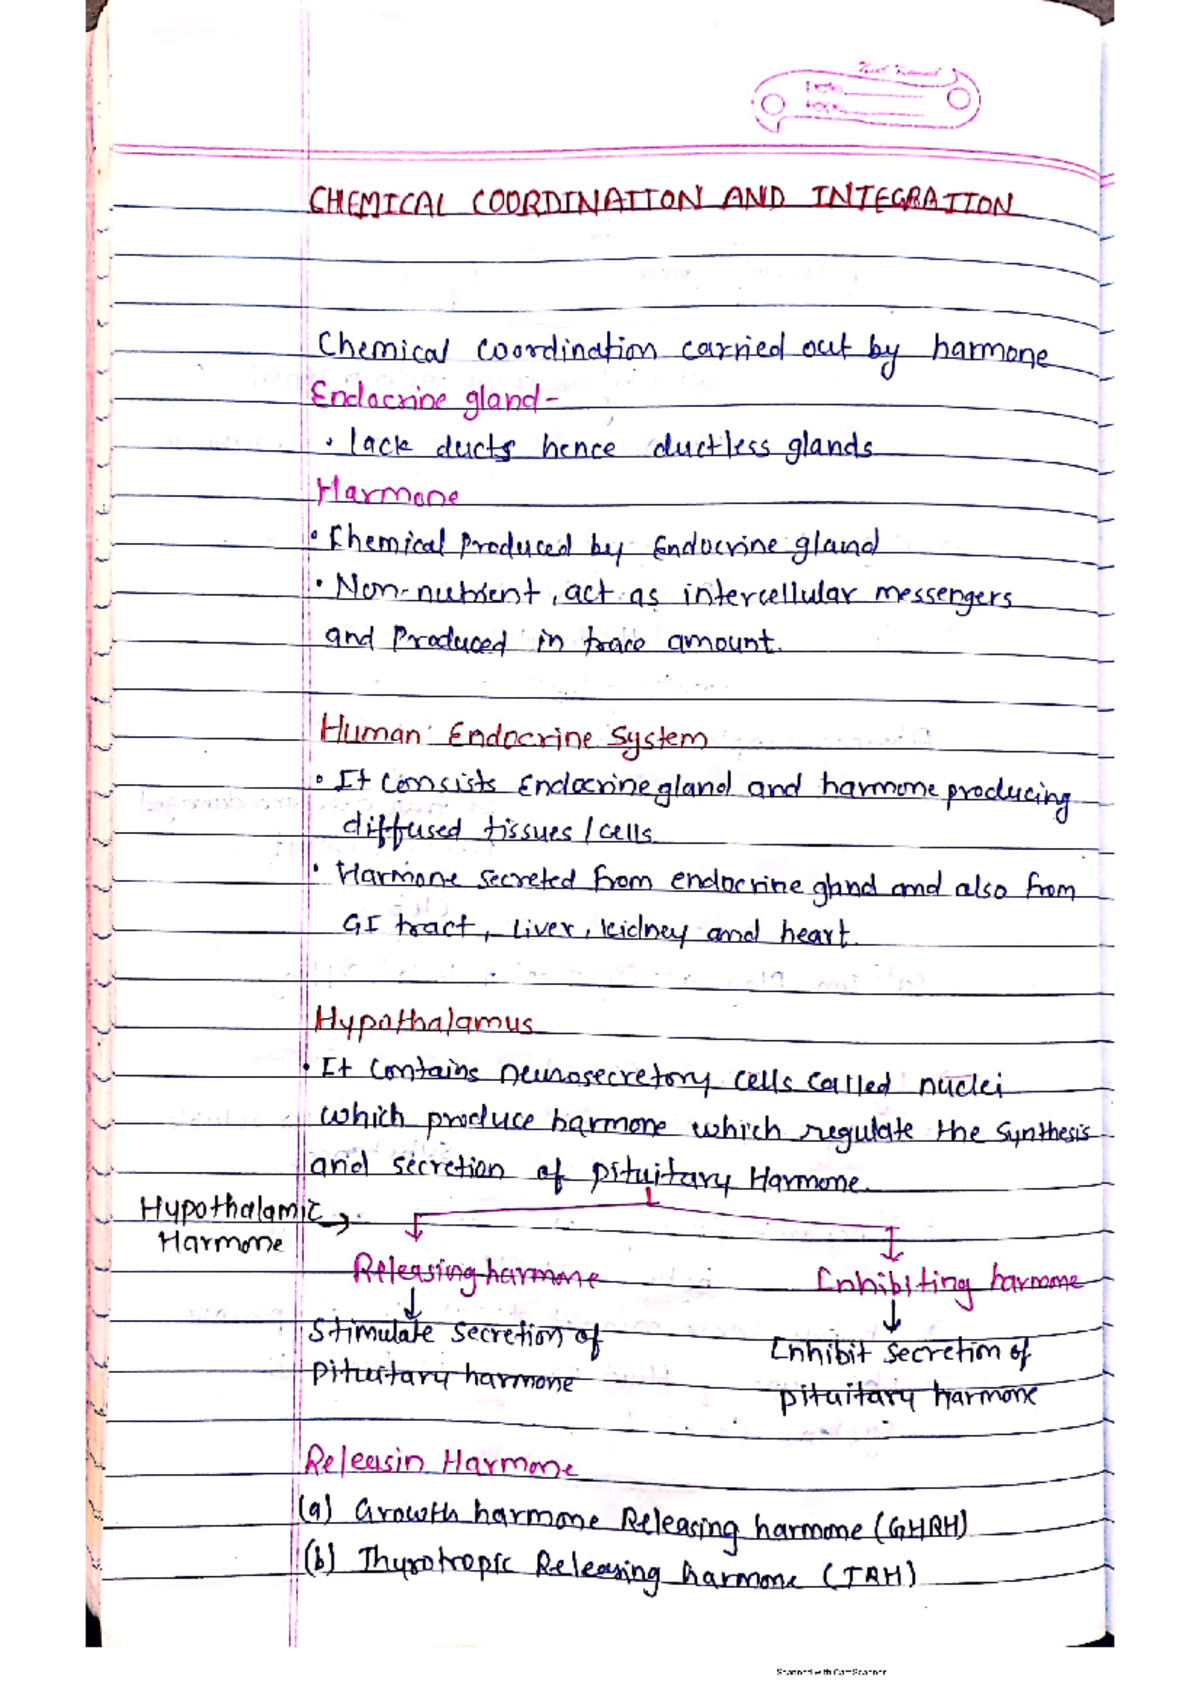 Date
Page
CHEMICAL COORDINATION AND INTEGRATION
Chemical coordination carried out by harmone
Endocrine gland-
• lack ducts hence ductless glands
Harmone
• Chemical produced by Endocrine gland
• Non-nutrient, act as intercellular messengers
and Produced in trace amount.
Human Endocrine System
• It consists Endocrine gland and harmone producing
diffused tissues/cells
• Harmone secreted from endocrine gland and also from
GI tract, Liver, kidney and heart
Hypothalamus
• It contains neurosecretory cells called nuclei
which produce harmone which regulate the synthesis
and secretion of pituitary Harmone.
Hypothalamic →
Harmone
Releasing harmone Inhibiting harmone
Stimulate secretion of Inhibit secretion of
pituitary harmone pituitary harmone
Releasin Harmone
(a) Growth harmone Releasing harmone (GHRH)
(b) Thyrotropic Releasing harmone (TRH)
Scanned with CamScanner